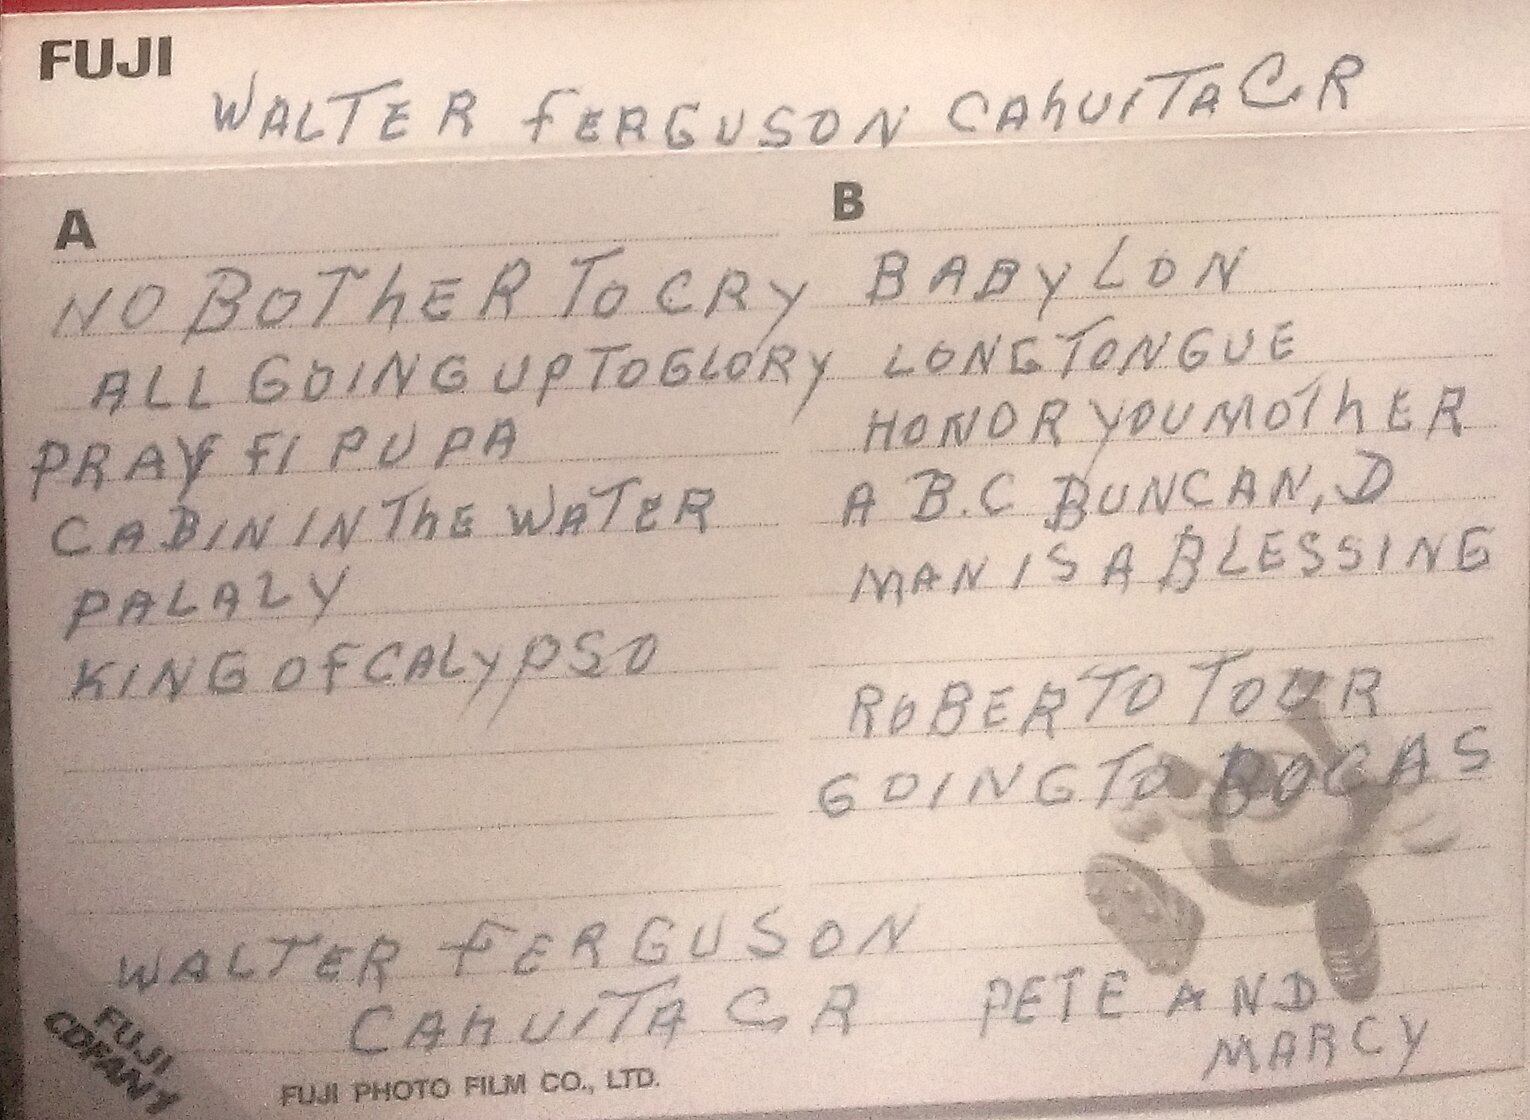 FUJI
WALTER FERGUSON CAhUITA C R
A
NO BOThER TO CRY
ALL GOING UP TO GLORY
PRAY FI PUPA
CABIN IN ThE WATER
PALALY
KING OF CALYPSO
B
BABYLON
LONG TONGUE
HONOR YOU MOThER
A B.C BUNCAN, D
MAN IS A BLESSING
ROBERTO TOUR
GOING TO BOCAS
WALTER FERGUSON
CAhUITA C R
PETE AND
MARCY
FUJI
CDFANY
FUJI PHOTO FILM CO., LTD.